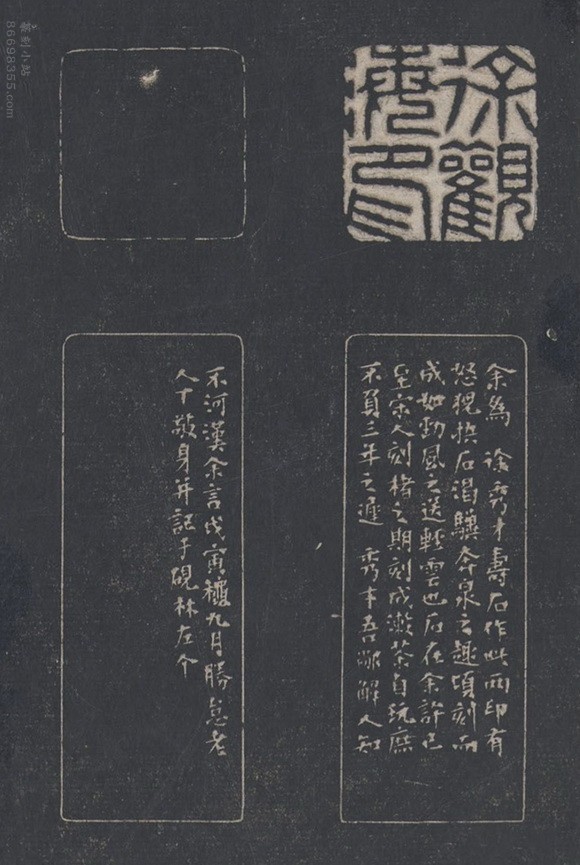 徐觀
海印
余為徐秀才壽石作此兩印有
怒猊抉石渴驥奔泉之趣頃刻而
成如勁風之送輕雲也石在余許已
至宋人刻楮之期刻成漱茶自玩庶
不負三年之遲 秀才吾鄉解人知
不河漢余言戊寅穐九月勝怠老
人丁敬身并記于硯林左个
篆刻小站
86698355.com